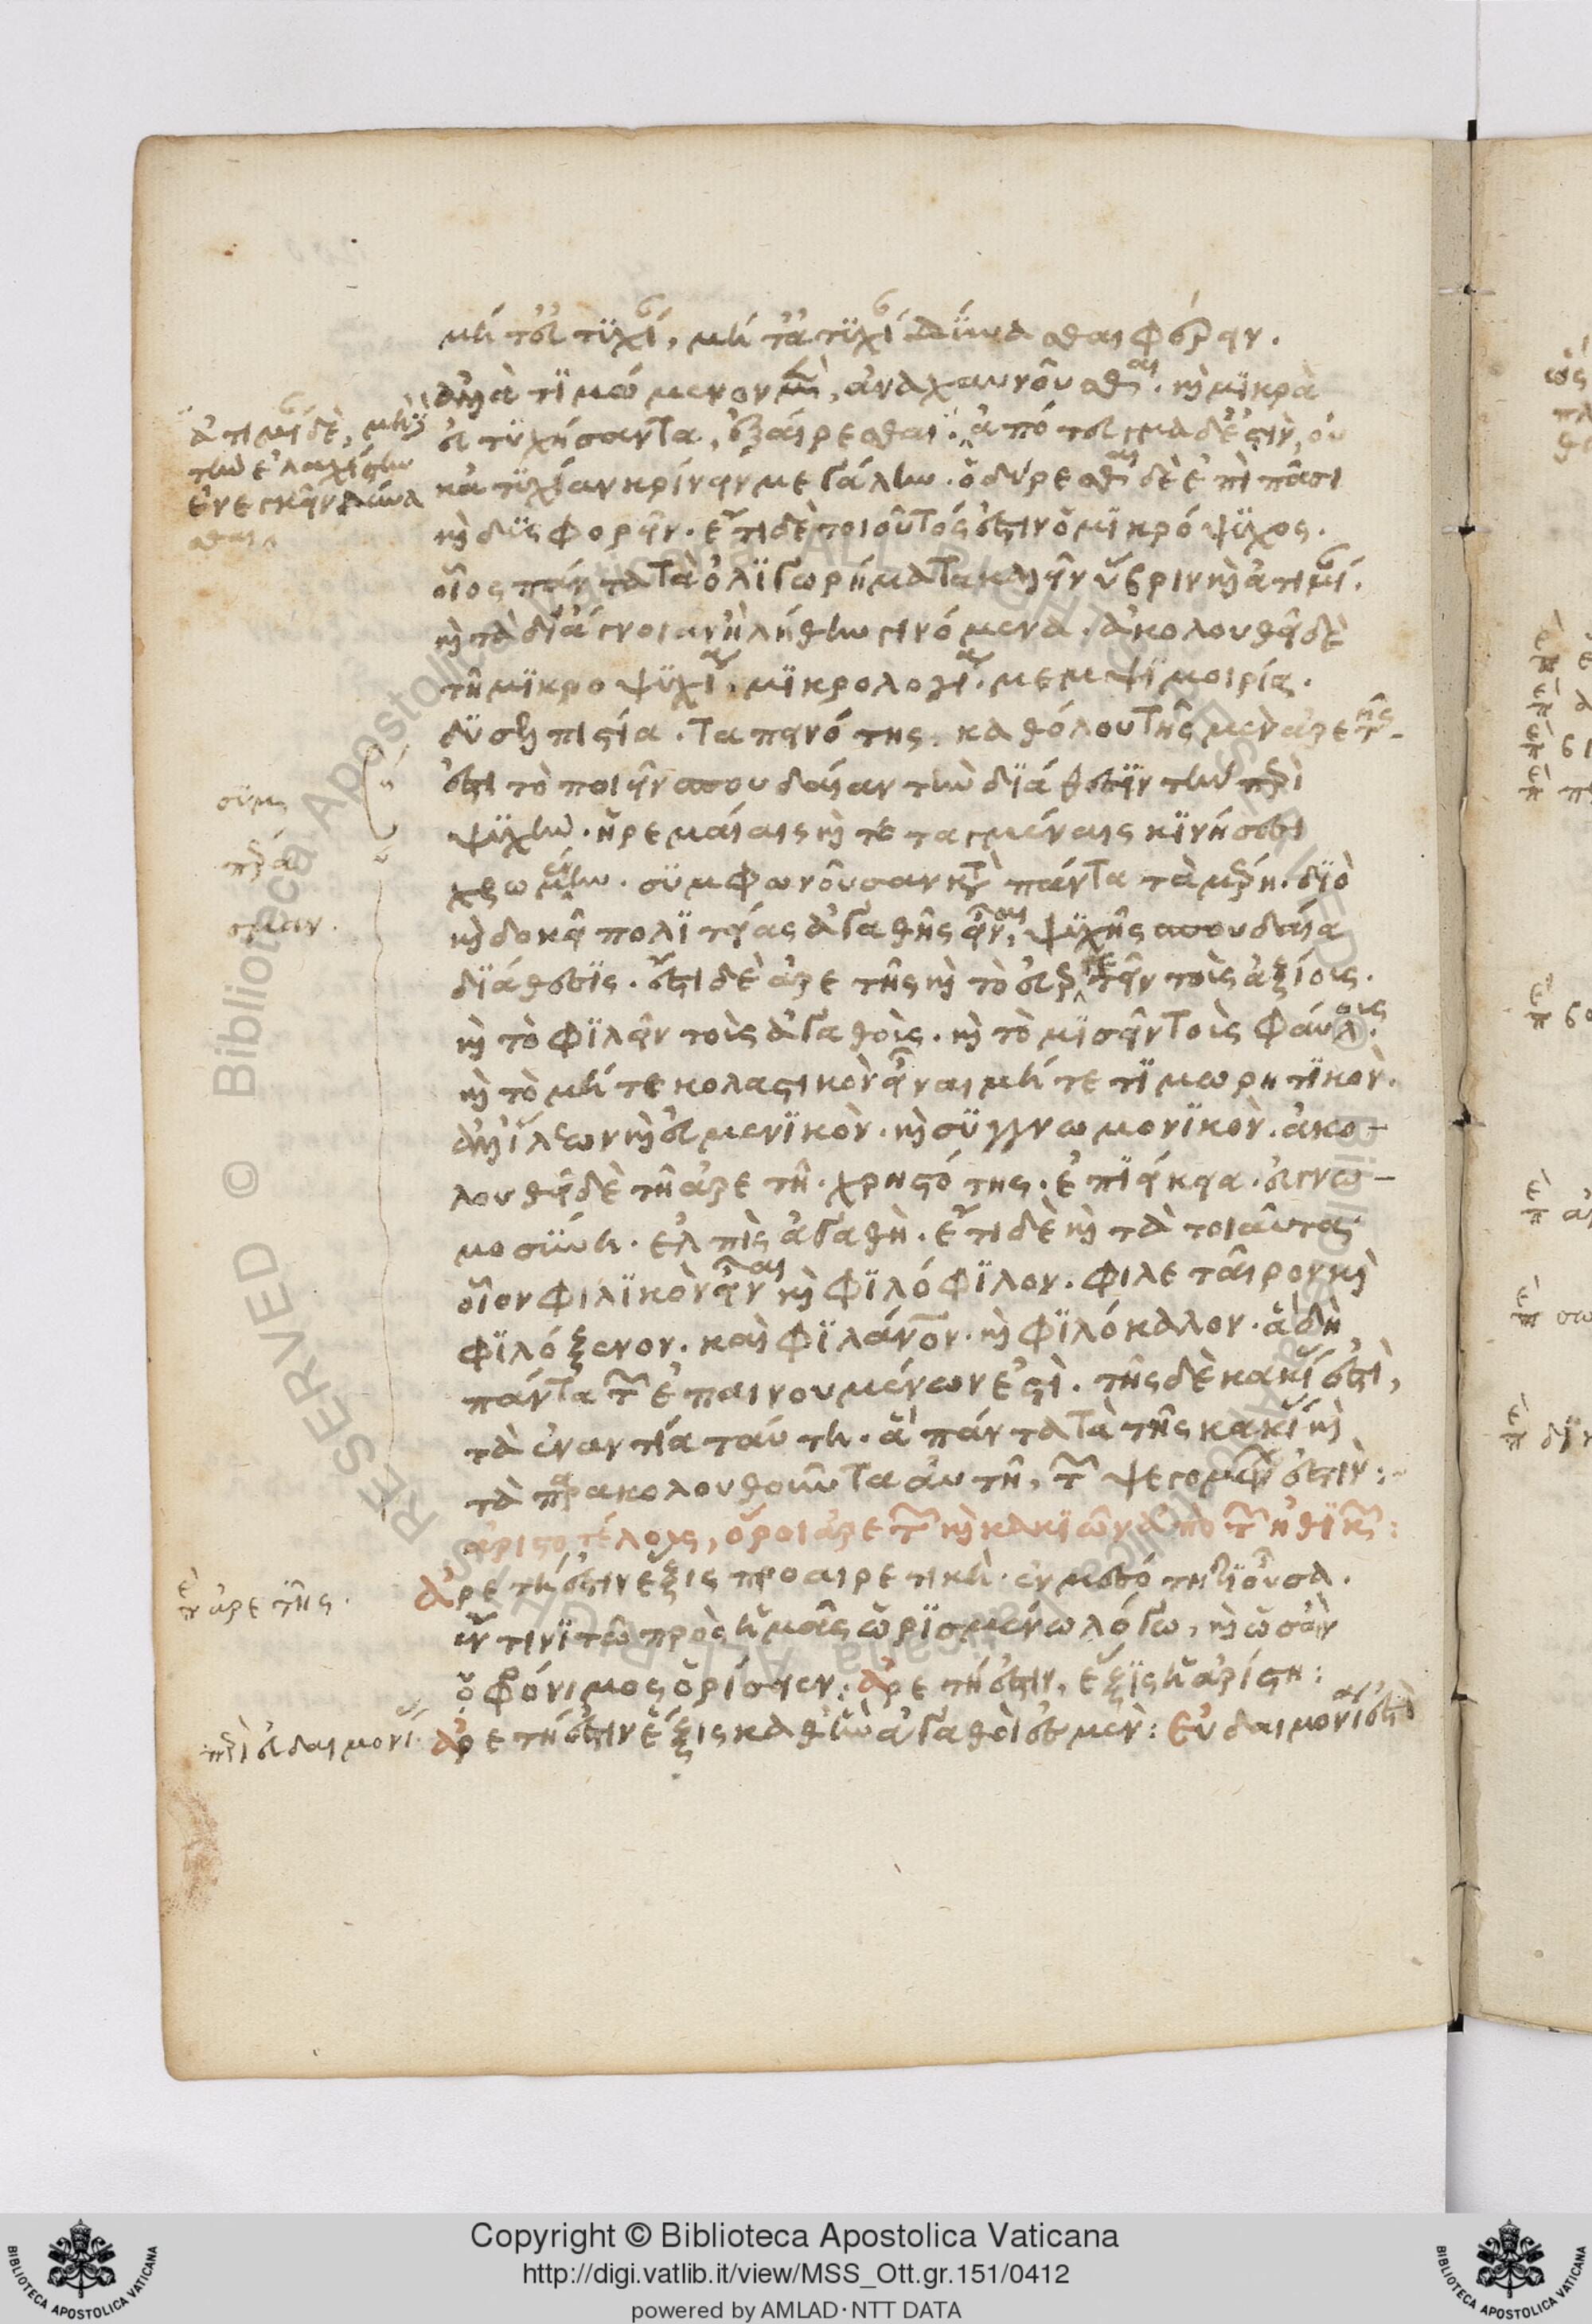 μὴ τ' εὐτυχίαν, μὴ τ' ἀτυχίαν δύνασθαι φέρειν.
ἀλλὰ τιμώμενον μὲν, ἀναχαυνοῦσθαι. καὶ μικρὰ
εὐτυχήσαντα, ἐξαίρεσθαι.
κρίνειν μεγάλην. ὀδύρεσθαι δὲ ἐπὶ πᾶσι
καὶ δυσφορεῖν. ἔτι δὲ τοιοῦτός ἐστιν ὁ μικρόψυχος.
οἷος πάντα τὰ ὀλιγωρήματα καλεῖν ὕβριν καὶ ἀτιμίαν.
καὶ τὰ δι' ἄγνοιαν ἢ λήθην γινόμενα. ἀκολουθεῖ δὲ
τῇ μικροψυχίᾳ. μικρολογία. μεμψιμοιρία.
δυσελπιστία. ταπεινότης. καθόλου τῆς μὲν ἀρετῆς
ἐστι τὸ ποιεῖν σπουδαίαν τὴν διάθεσιν τὴν περὶ
ψυχήν. ἠρεμαίαις καὶ τεταγμέναις κινήσεσι
χρωμένην. συμφωνοῦσαν κατὰ πάντα τὰ μέρη. διὸ
καὶ δοκεῖ πολιτείας ἀγαθῆς εἶναι, ψυχῆς σπουδαία
διάθεσις. ἔστι δὲ ἀρετῆς καὶ τὸ εὐεργετεῖν τοὺς ἀξίους.
καὶ τὸ φιλεῖν τοὺς ἀγαθούς. καὶ τὸ μισεῖν τοὺς φαύλους.
καὶ τὸ μήτε κολαστικὸν εἶναι μήτε τιμωρητικόν.
ἀλλ' ἵλεων καὶ εὐμενικὸν. καὶ συγγνωμονικὸν. ἀκο-
λουθεῖ δὲ τῇ ἀρετῇ. χρηστότης. ἐπιείκεια. εὐγνω-
μοσύνη. ἐλπὶς ἀγαθὴ. ἔτι δὲ καὶ τὰ τοιαῦτα
οἷον φιλικὸν εἶναι καὶ φιλόφιλον. φιλέταιρον καὶ
φιλόξενον. καὶ φιλάνθρωπον. καὶ φιλόκαλον. ἃ δὴ
πάντα τῶν ἐπαινουμένων ἐστὶ. τῆς δὲ κακίας ἐστὶ,
τὰ ἐναντία ταύτη. ἅπαντα τὰ τῆς κακίας καὶ
τὰ παρακολουθοῦντα αὐτῇ, τῶν ψεγομένων ἐστὶν:
ἀριστοτέλους, ὅροι ἀρετῶν καὶ κακιῶν ἀπὸ τῶν ἠθικῶν:
ἀρετὴ ἐστὶν ἕξις προαιρετικὴ. ἐν μεσότητι οὖσα.
τῇ πρὸς ἡμᾶς ὡρισμένῳ λόγῳ, καὶ ὡς ἂν
ὁ φρόνιμος ὁρίσειεν: ἀρετή ἐστιν, ἕξις ἡ ἀρίστη:
ἀρετή ἐστιν ἕξις καθ' ἣν ἀγαθοὶ ἐσμὲν: εὐδαιμονία ἐστὶ
ἀτιμίαν δὲ, μηδὲ
τὴν ἐλαχίστην
ἐνεγκεῖν δύνα
σθαι
περὶ ἀρετῆς.
περὶ εὐδαιμονίας
Copyright © Biblioteca Apostolica Vaticana
http://digi.vatlib.it/view/MSS_Ott.gr.151/0412
powered by AMLAD·NTT DATA
BIBLIOTECA APOSTOLICA VATICANA
BIBLIOTECA APOSTOLICA VATICANA